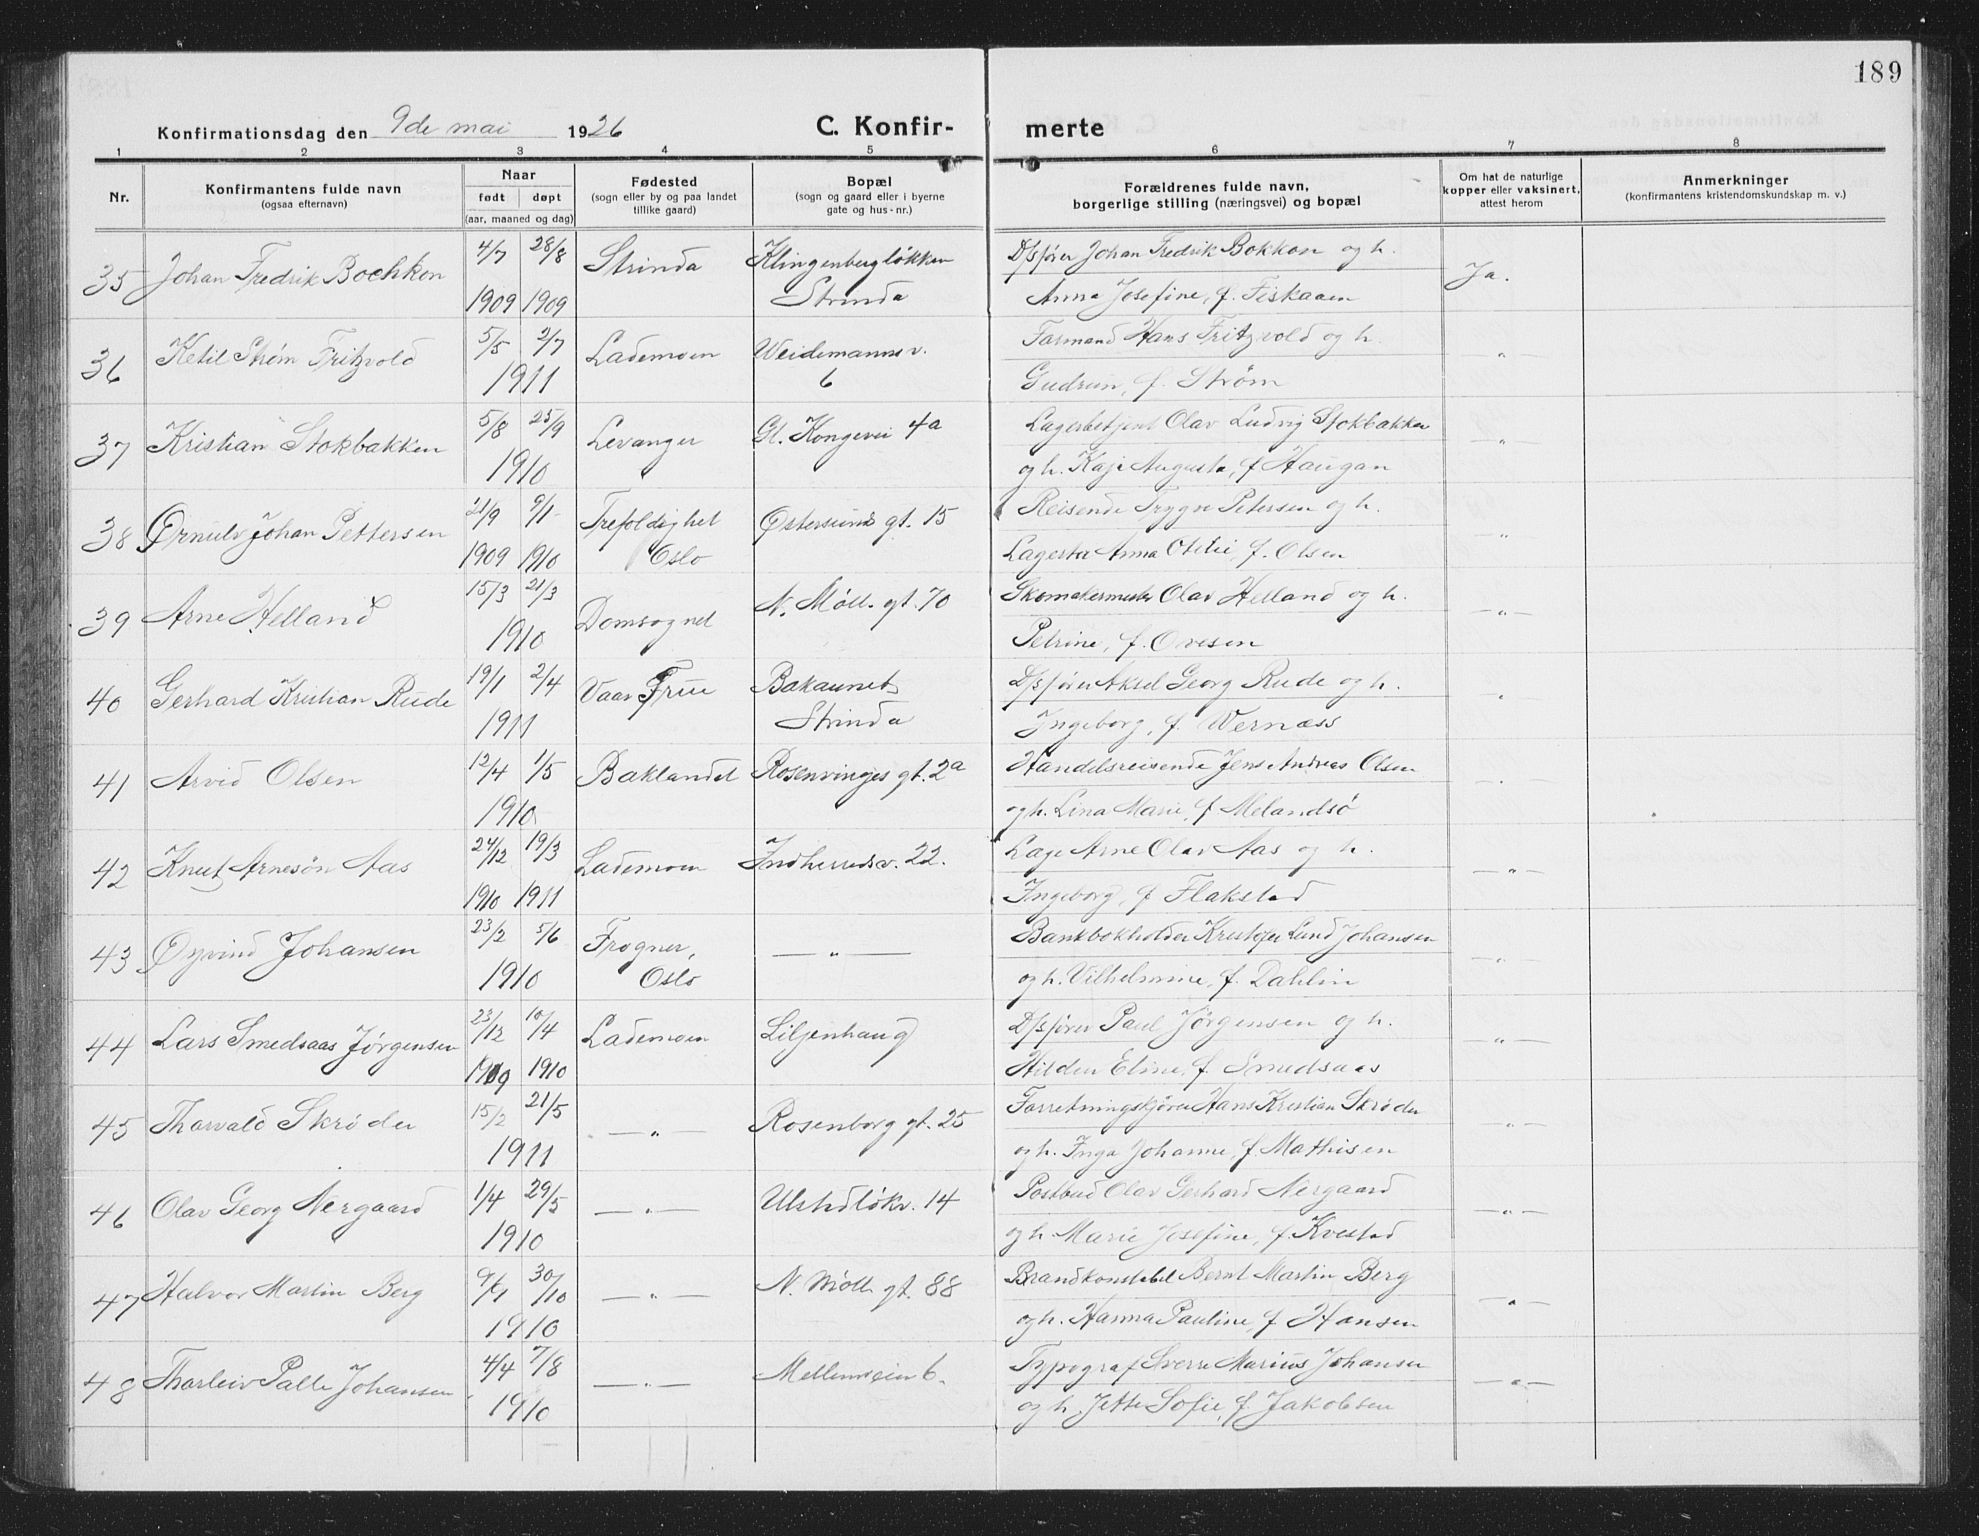 189
Konfirmationsdag den 9de mai 1926 C. Konfir- merte
1 2 3 4 5 6 7 8
Nr. Konfirmantens fulde navn (ogsaa efternavn) Naar født døpt (aar, maaned og dag) Fødested (sogn eller by og paa landet tillike gaard) Bopæl (sogn og gaard eller i byerne gate og hus-nr.) Forældrenes fulde navn, borgerlige stilling (næringsvei) og bopæl Om hat de naturlige kopper eller vaksinert, attest herom Anmerkninger (konfirmantens kristendomskundskap m. v.)
35 Johan Fredrik Bochkon 4/7 28/8 Strinda Klingenbergløkken D/sfører Johan Fredrik Bokkon og h. Ja.
1909 1909 Strinda Anna Josefine, f. Fiskaaen
36 Ketil Strøm Fritzvold 5/5 2/7 Lademoen Weidemannsv. Farmand Hans Fritzvold og h. "
1911 6 Gudrun, f. Strøm
37 Kristian Stokbakken 5/8 25/9 Levanger Gl. Kongevei 4a Lagerbetjent Olav Ludvig Stokbakken "
1910 og h. Kaja Augusta, f Haugan
38 Ørnulv Johan Pettersen 21/9 9/1 Trefoldighet Østersunds gt. 15 Reisende Trygve Petersen og h. "
1909 1910 Oslo Anna f. Olsen
39 Arne Helland 15/3 21/3 Domsognet N. Møll. gt. 70 Skomakermester Olav Helland og h. "
1910 Petrine, f. Ovesen
40 Gerhard Kristian Rude 19/1 2/4 Vaar Frue Bakaunet D/sfører Aksel Georg Rude og h. "
1911 Strinda Ingeborg, f. Wernæss
41 Arvid Olsen 12/4 1/5 Baklandet Rosenvinges gt. 2a Handelsreisende Jens Andreas Olsen "
1910 og h. Lina Marie, f Melandsö
42 Knut Arnesøn Aas 24/12 19/3 Lademoen Indherredsv. 22. Arne Olav Aas og h. "
1910 1911 Ingeborg, f Flakstad
43 Øyvind Johansen 23/2 5/6 Frogner, " Bankbokholder Kristofer Lund Johansen "
1910 Oslo og h. Vilhelmine, f. Dahlin
44 Lars Smedsaas Jørgensen 23/12 10/4 Lademoen Liljenhaug D/sfører Paul Jørgensen og h. "
1909 1910 Eline, f Smedsaas
45 Thorvald Skrøder 15/2 21/5 " Rosenborg gt. 25 Forretningskjører Hans Kristian Skrøder "
1911 og h. Inga Johanne, f Mathisen
46 Olav Georg Nergaard 1/4 29/5 " Ulstadløkv. 14 Postbud Olav Gerhard Nergaard "
1910 og h. Marie Josefine, f. Kvestad
47 Halvor Martin Berg 30/10 " N. Møll. gt. 88 Brandkonstabel Bernt Martin Berg "
1910 og h. Hanna Pauline, f Hansen
48 Thorleiv Palle Johansen 4/4 7/8 " Mellemveien 6. Typograf Sverre Marius Johansen "
1910 og h. Jette Sofie, f. Jakobsen